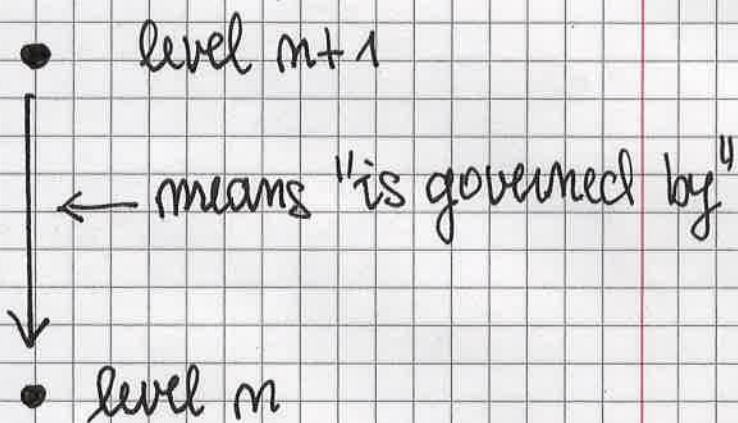 level n+1
means "is governed by"
level n